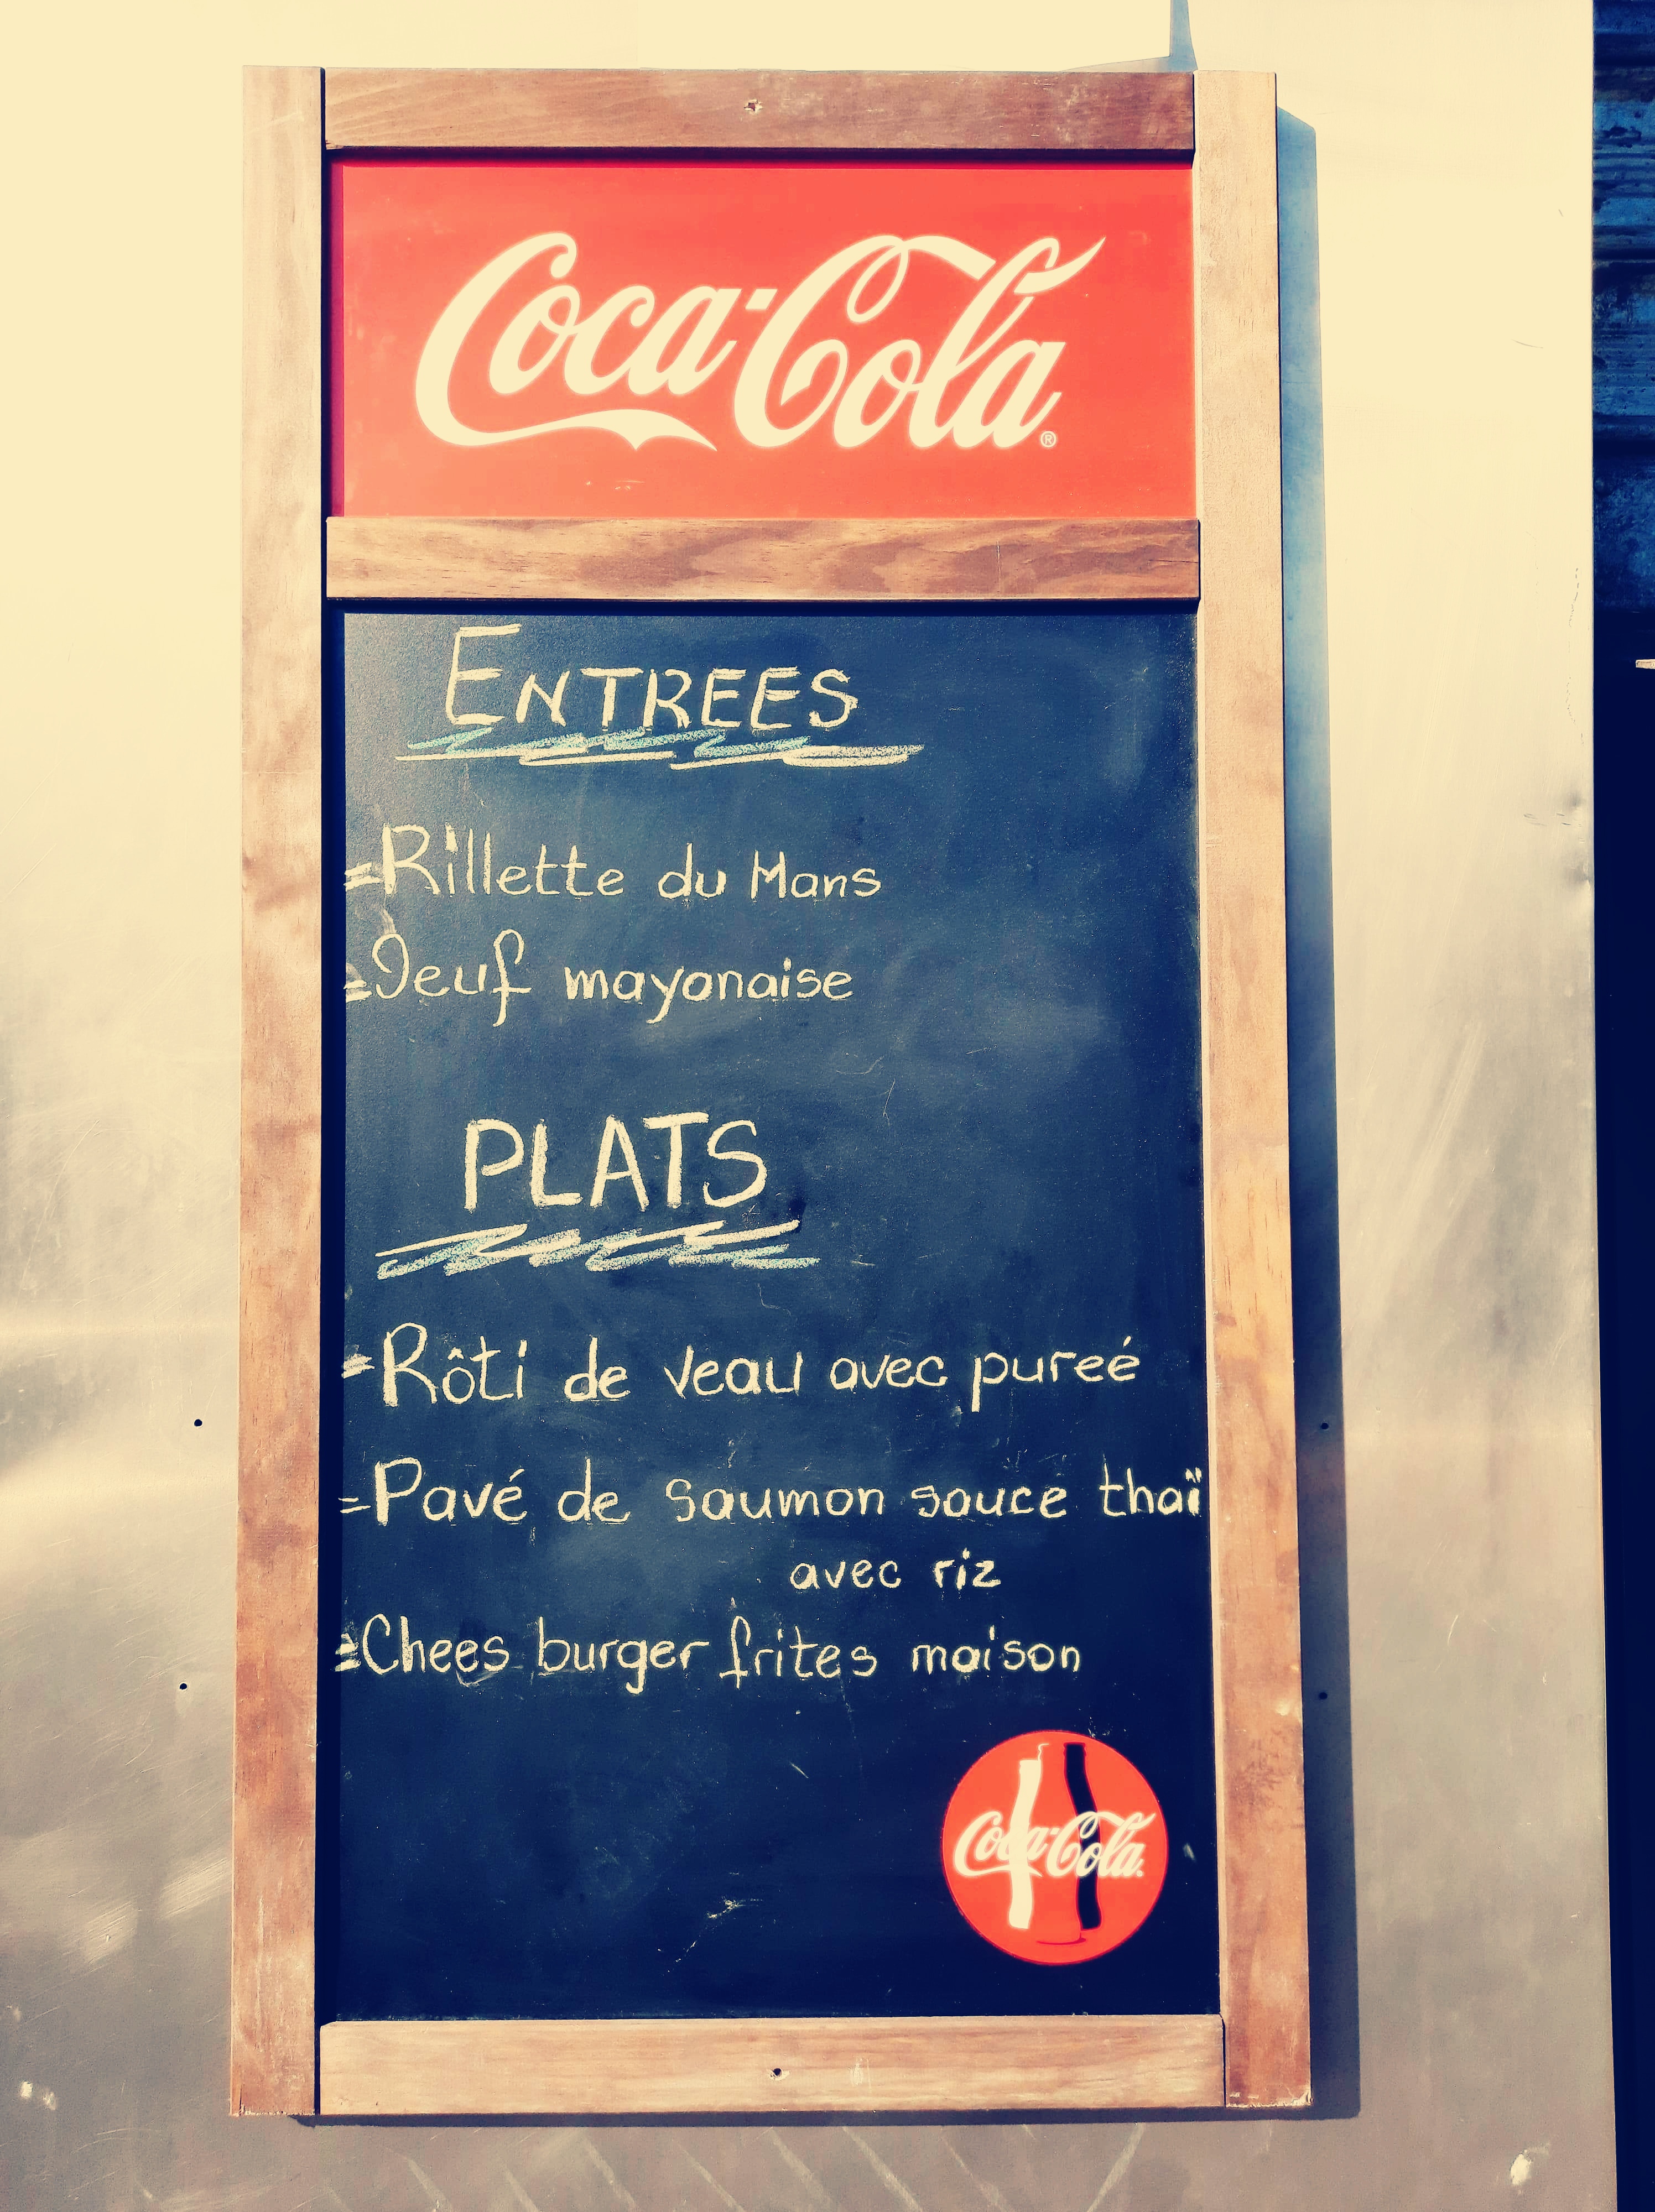 Coca-Cola®
ENTREES
=Rillette du Mans
=Oeuf mayonaise
PLATS
=Rôti de veau avec pureé
=Pavé de saumon sauce thaï
avec riz
=Chees burger frites maison
Coca-Cola